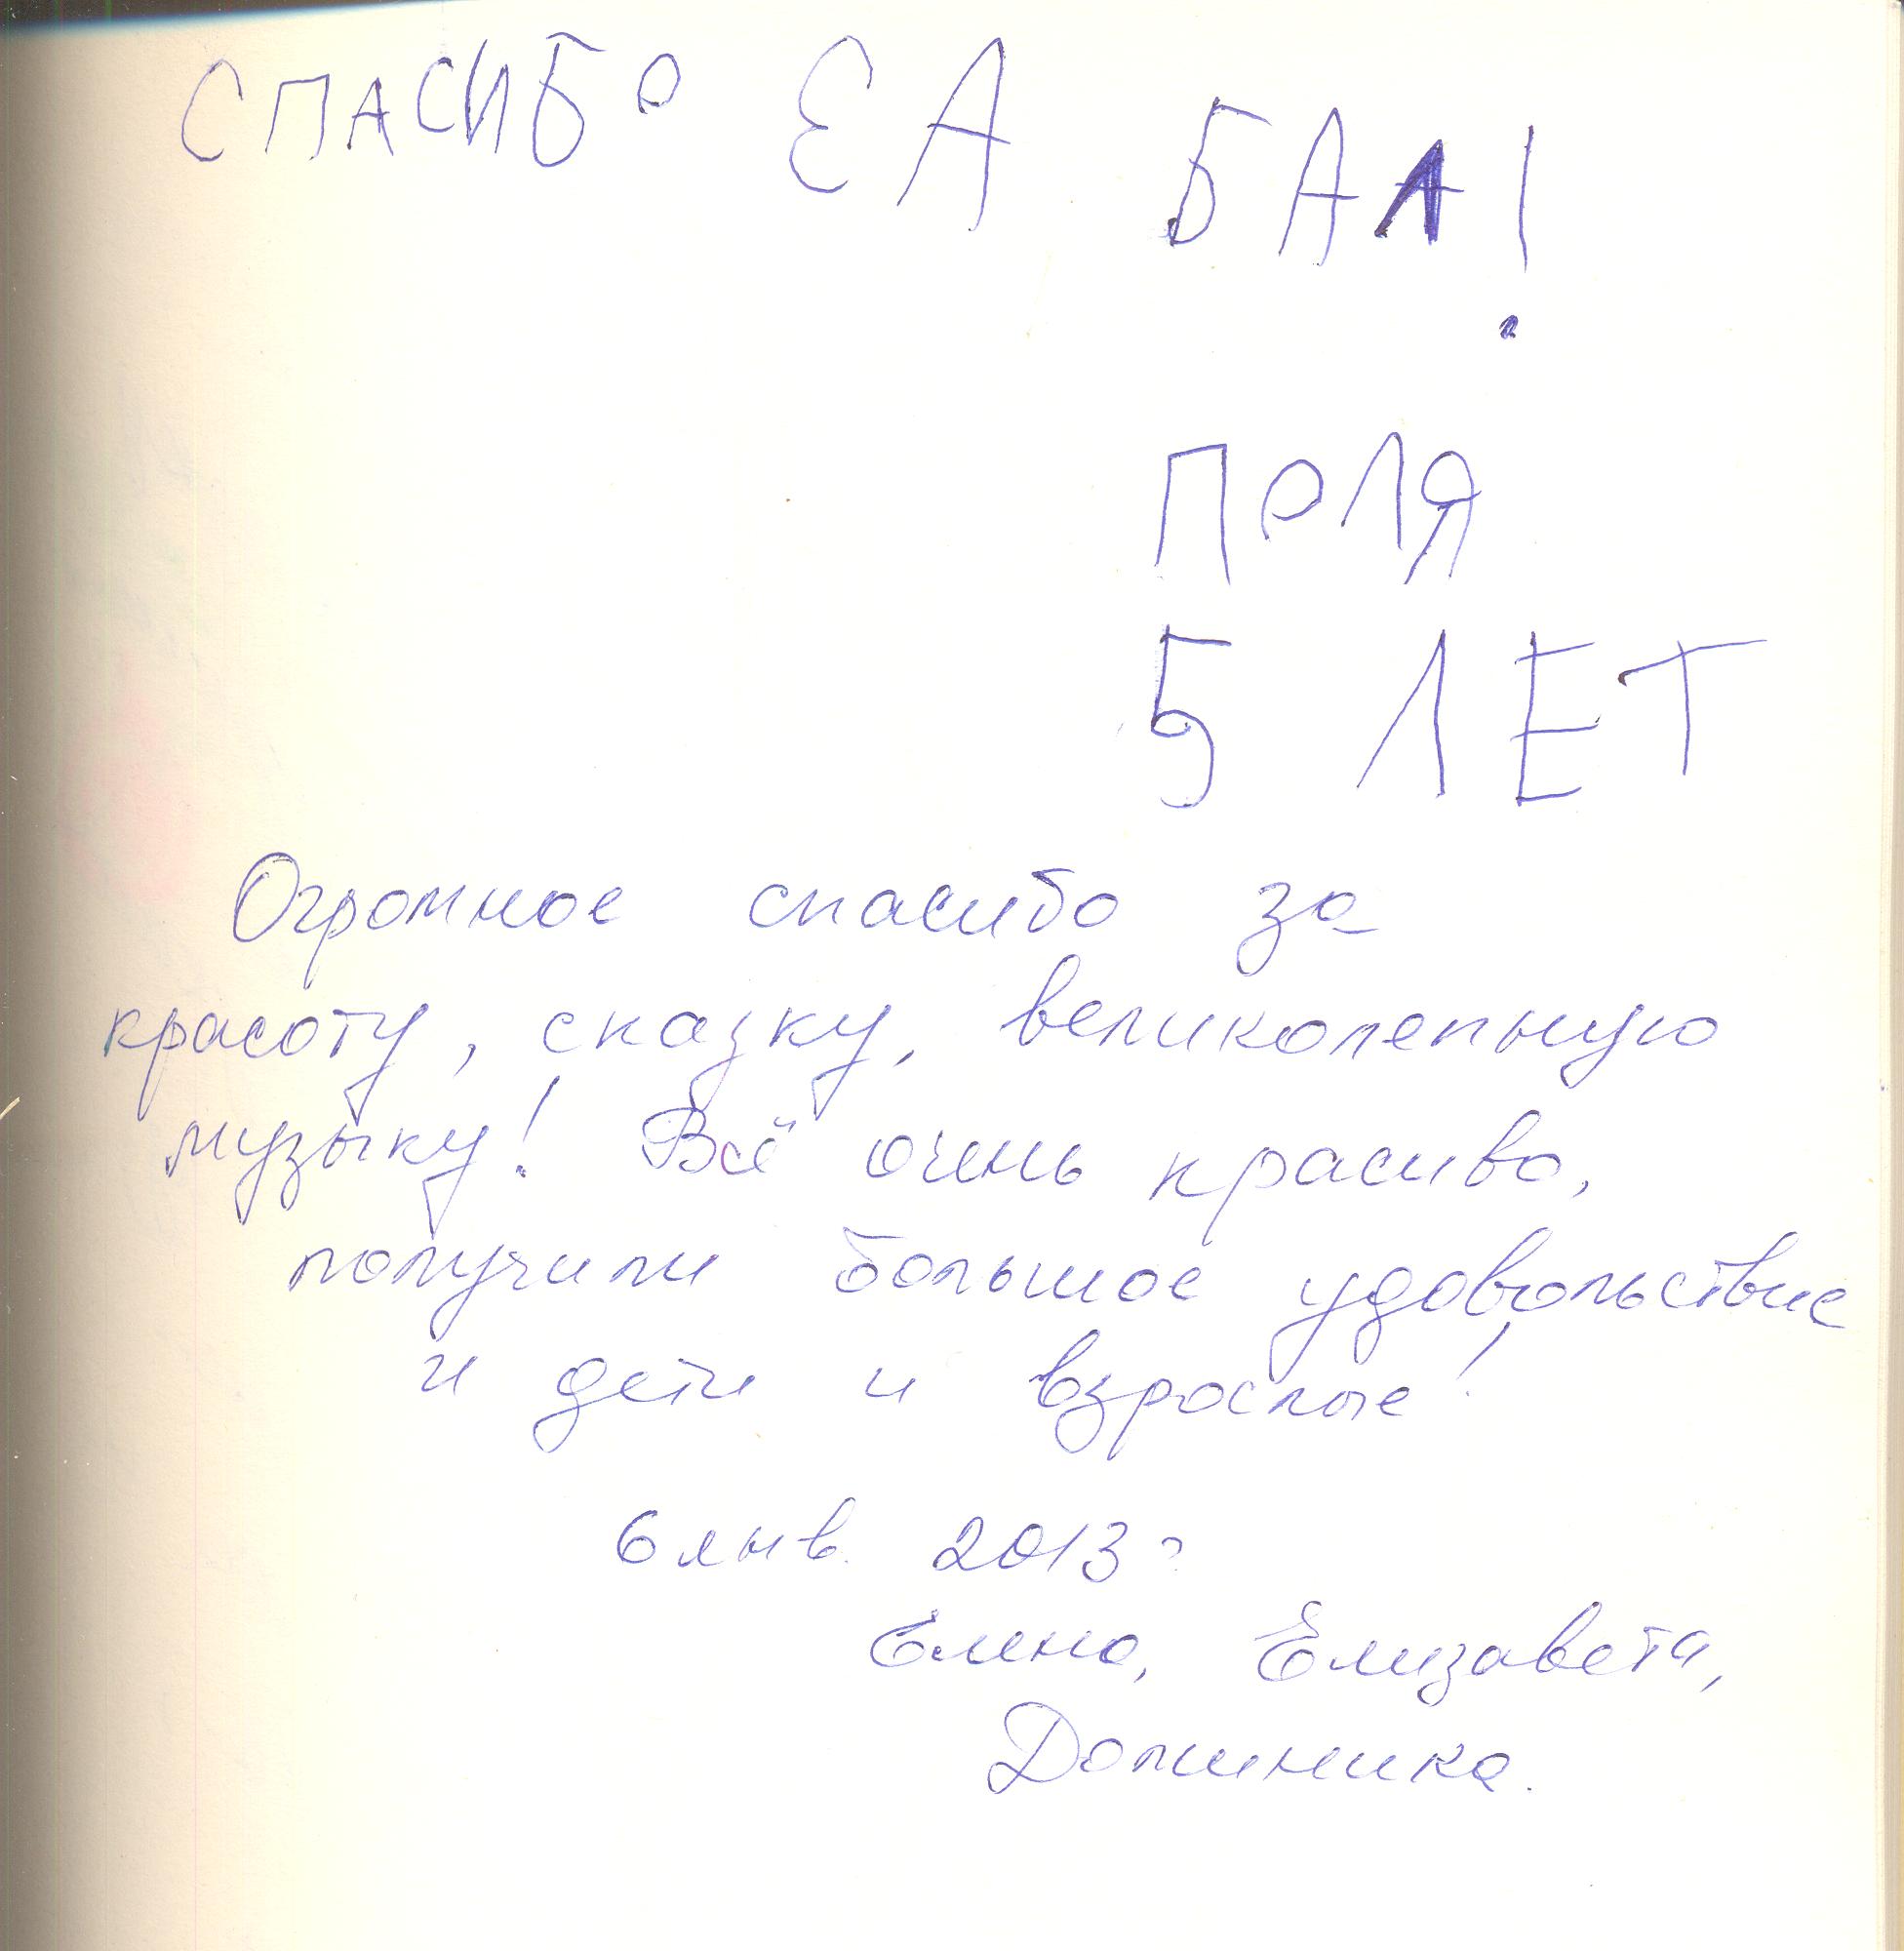 СПАСИБО ЗА БАЛ!
ПОЛЯ
5 ЛЕТ
Огромное спасибо за
красоту, сказку, великолепную
музыку! Всё очень красиво,
получили большое удовольствие
и дети и взрослые!
6 янв. 2013 г
Елена, Елизавета,
Доминика.